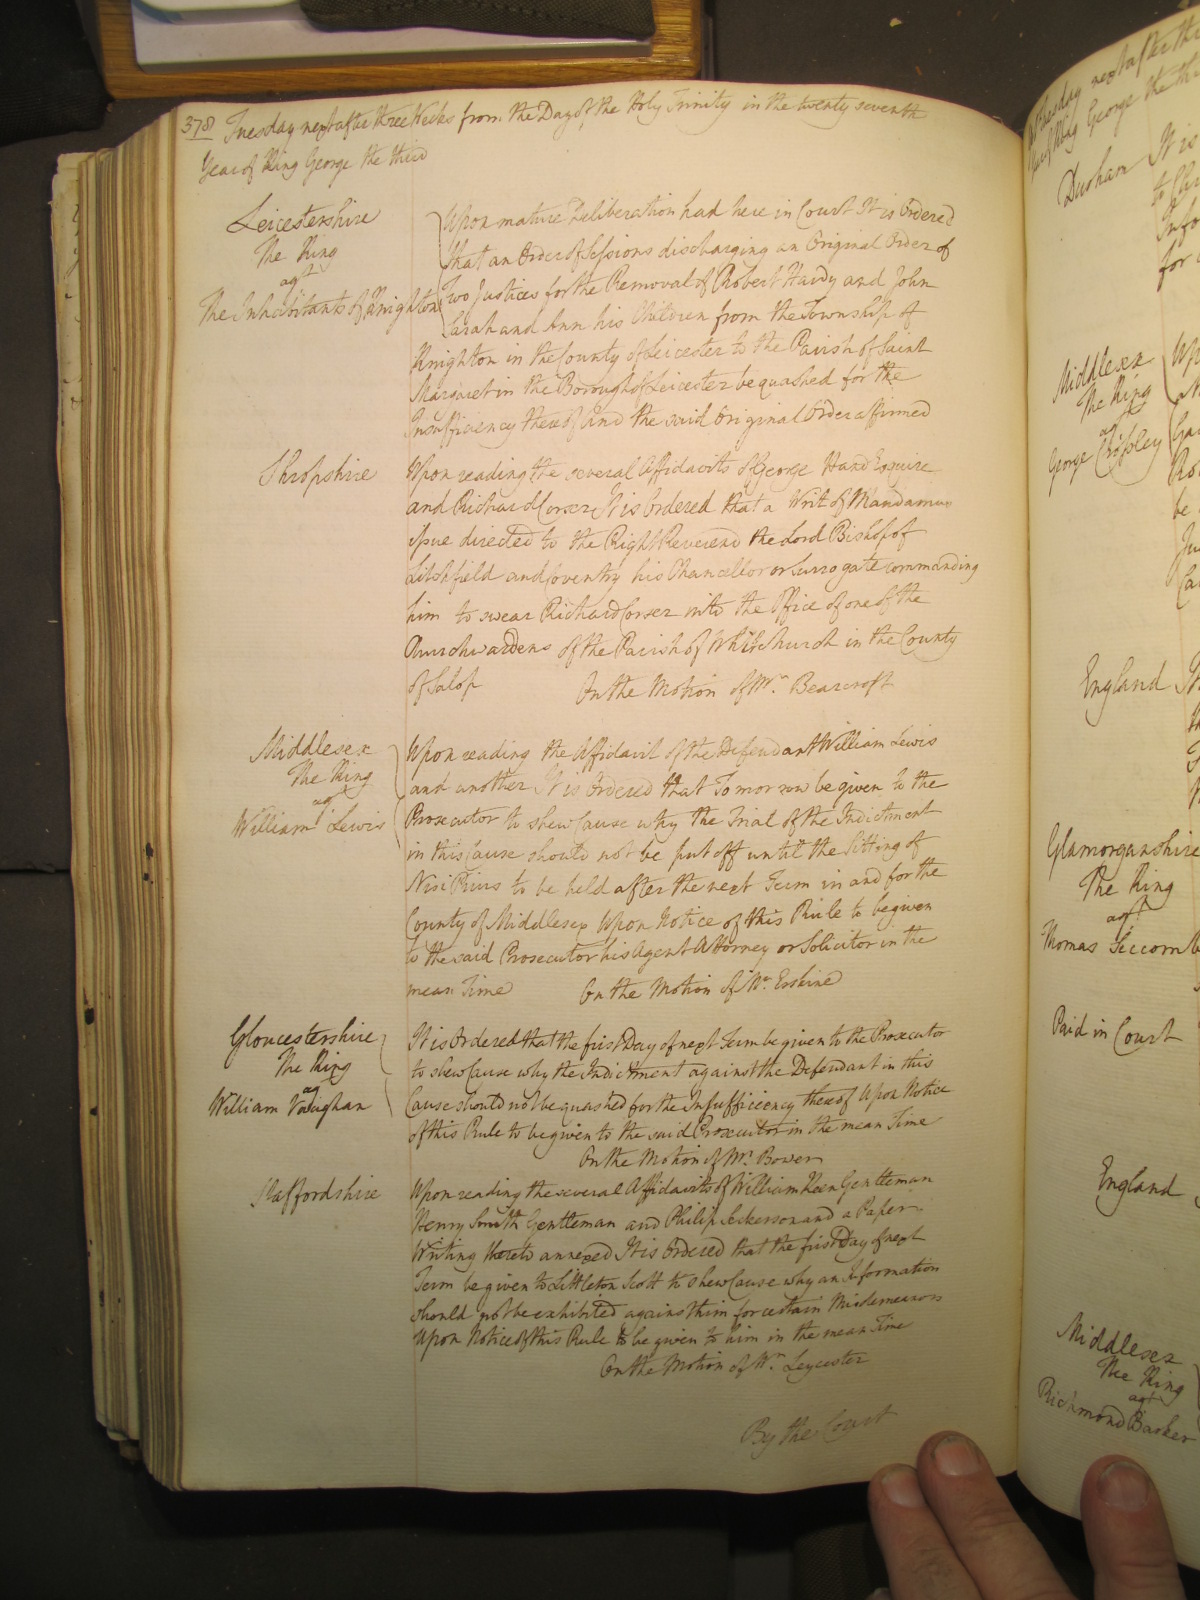 378 Tuesday next after three Weeks from the Day of the Holy Trinity in the twenty seventh
Year of King George the third
Leicestershire
The King
agt
The Inhabitants of Knighton
Upon mature Deliberation had here in Court It is Ordered
that an Order of Sessions discharging an Original Order of
Two Justices for the Removal of Robert Hardy and John
Sarah and Ann his Children from the Township of
Knighton in the County of Leicester to the Parish of Saint
Margaret in the Borough of Leicester be quashed for the
Insufficiency thereof And the said Original Order affirmed
Shropshire
Upon reading the several Affidavits of George Hand Esquire
and Richard Corser It is Ordered that a Writ of Mandamus
Issue directed to the Right Reverend the Lord Bishop of
Litchfield and Coventry his Chancellor or Surrogate commanding
him to swear Richard Corser into the Office of one of the
Churchwardens of the Parish of Whitchurch in the County
of Salop On the Motion of Mr. Bearcroft
Middlesex
The King
agt
William Lewis
Upon reading the Affidavit of the Defendant William Lewis
and another It is Ordered that Tomorrow be given to the
Prosecutor to shew Cause why the Trial of the Indictment
in this Cause should not be put off until the Sitting of
Nisi Prius to be held after the next Term in and for the
County of Middlesex Upon Notice of this Rule to be given
to the said Prosecutor his Agent Attorney or Solicitor in the
mean Time On the Motion of Mr. Erskine
Gloucestershire
The King
agt
William Vaughan
It is Ordered that the first Day of next Term be given to the Prosecutor
to shew Cause why the Indictment against the Defendant in this
Cause should not be quashed for the Insufficiency thereof Upon Notice
of this Rule to be given to the said Prosecutor in the mean Time
On the Motion of Mr. Bower
Staffordshire
Upon reading the several Affidavits of William Keen Gentleman
Henry Smith Gentleman and Philip Seckerson and a Paper
Writing thereto annexed It is Ordered that the first Day of next
Term be given to Littleton Scott to shew Cause why an Information
should not be exhibited against him for certain Misdemeanors
Upon Notice of this Rule to be given to him in the mean Time
On the Motion of Mr. Leycester
By the Court
Tuesday next after the
Year of King George the thi
Durham It is
to
Info
for
Middlesex
The King
agt
George Cropley
Up
be
England
Glamorganshire
The King
agt
Thomas
Paid in Court
England
Middlesex
The King
agt
Richmond Barker